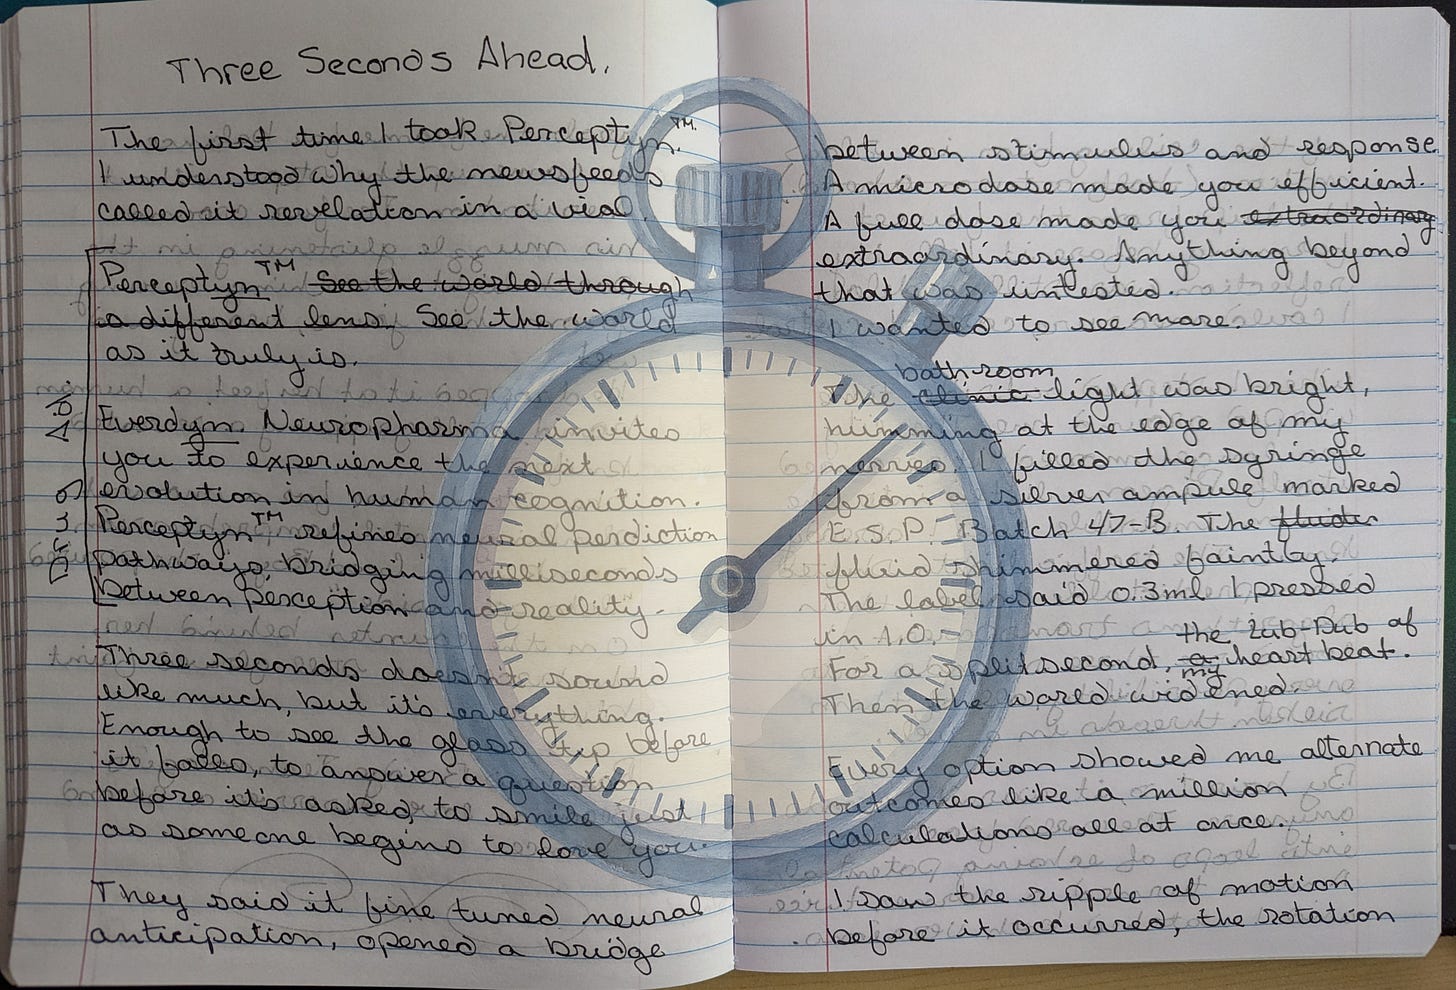 Three Seconds Ahead.
The first time I took Perceptyn™.
I understood why the newsfeeds
called it revelation in a vial.
Perceptyn™ See the world through
a different lens. See the world
as it truly is.
Everdyn Neuropharma invites
you to experience the next
evolution in human cognition.
Perceptyn™ refines neural perdiction
pathways, bridging milliseconds
between perception and reality.
Three seconds doesn't sound
like much, but it's everything.
Enough to see the glass tip before
it falls, to answer a question
before it's asked, to smile just
as someone begins to love you.
They said it fine tuned neural
anticipation, opened a bridge
between stimulus and response.
A microdose made you efficient.
A full dose made you extraordinary
extraordinary. Anything beyond
that was untested.
I wanted to see more.
bathroom
The clinic light was bright,
humming at the edge of my
nerves. I filled the syringe
from a silver ampule marked
E.S.P. - Batch 47-B. The
fluid shimmered faintly.
The label said 0.3ml I pressed
in 1.0.
the Lub-Dub of
For a split second, a heart beat.
my
Then the world widened.
Every option showed me alternate
outcomes like a million
calculations all at once.
I saw the ripple of motion
before it occurred, the rotation